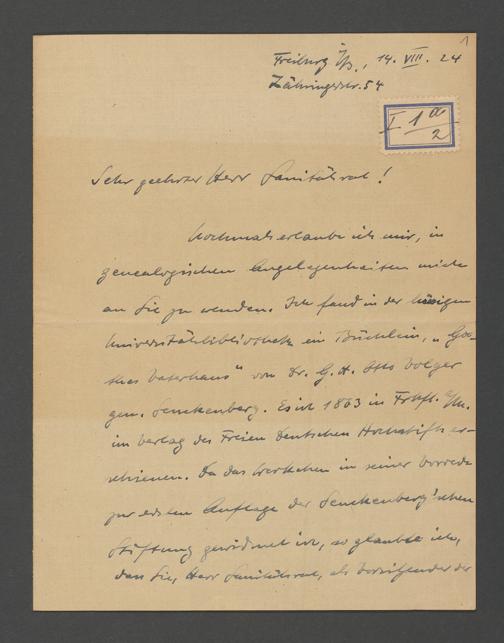 1
Freiburg i/B., 14. VIII. 24
Zähringerstr. 54
I 1a/2
Sehr geehrter Herr Sanitätsrat!
Nochmals erlaube ich mir, in
genealogischen Angelegenheiten mich
an Sie zu wenden. Ich fand in der hiesigen
Universitätsbibliothek ein Büchlein, „Goe-
thes Vaterhaus" von Dr. G. H. Otto Volger
gen. Senckenberg. Es ist 1863 in Frkft. a/M.
im Verlag des Freien Deutschen Hochstifts er-
schienen. Da das Werkchen in seiner Vorrede
zur ersten Auflage der Senckenberg'schen
Stiftung gewidmet ist, so glaubte ich,
dass Sie, Herr Sanitätsrat, als Vorsitzender der